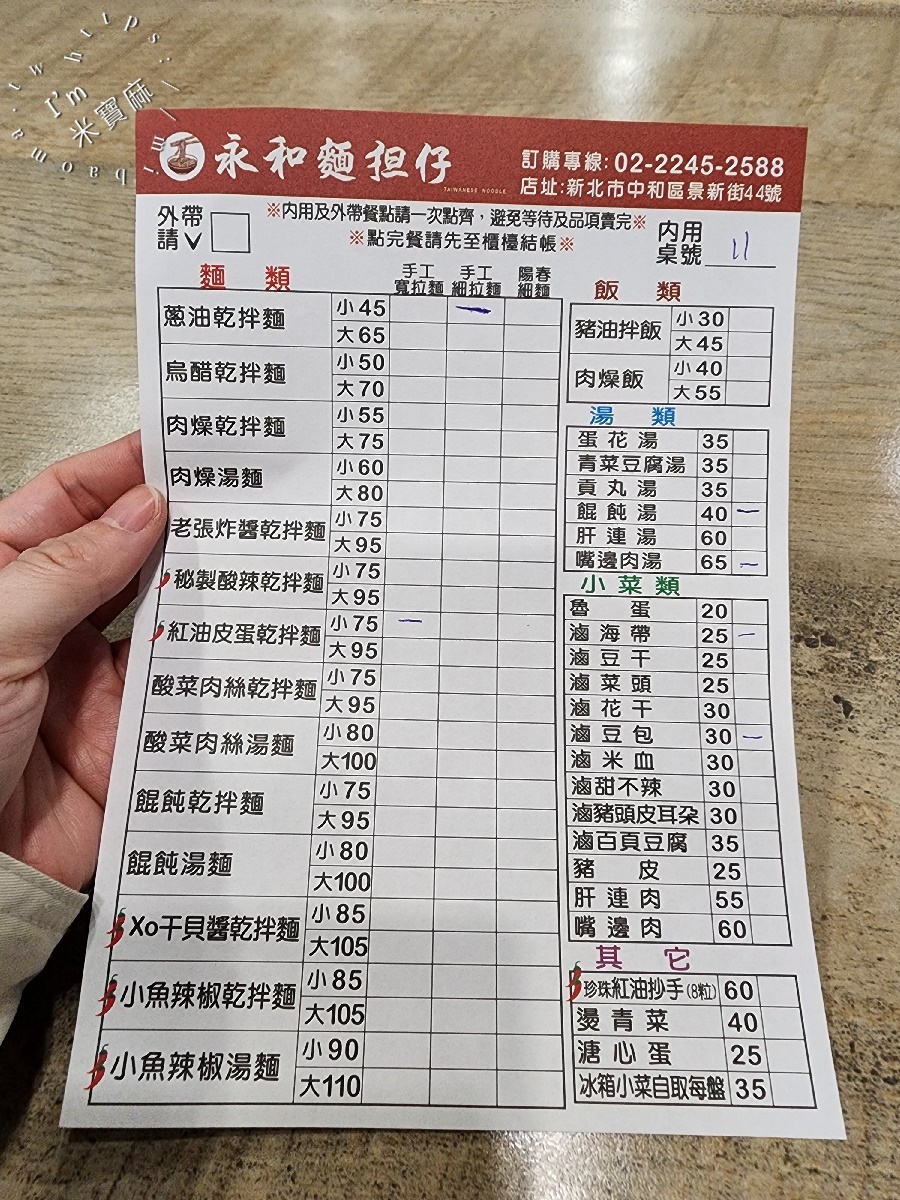 I'm
米寶麻
永和麵担仔
TAIWANESE NOODLE
訂購專線: 02-2245-2588
店址:新北市中和區景新街44號
外帶
請✓
※內用及外帶餐點請一次點齊,避免等待及品項賣完※
※點完餐請先至櫃檯結帳※
內用
桌號 11
麵類 手工寬拉麵 手工細拉麵 陽春細麵
蔥油乾拌麵 小45 一
大65
烏醋乾拌麵 小50
大70
肉燥乾拌麵 小55
大75
肉燥湯麵 小60
大80
老張炸醬乾拌麵 小75
大95
秘製酸辣乾拌麵 小75
大95
紅油皮蛋乾拌麵 小75 一
大95
酸菜肉絲乾拌麵 小75
大95
酸菜肉絲湯麵 小80
大100
餛飩乾拌麵 小75
大95
餛飩湯麵 小80
大100
Xo干貝醬乾拌麵 小85
大105
小魚辣椒乾拌麵 小85
大105
小魚辣椒湯麵 小90
大110
飯類
豬油拌飯 小30
大45
肉燥飯 小40
大55
湯類
蛋花湯 35
青菜豆腐湯 35
貢丸湯 35
餛飩湯 40 一
肝連湯 60
嘴邊肉湯 65 一
小菜類
魯蛋 20
滷海帶 25 一
滷豆干 25
滷菜頭 25
滷花干 30
滷豆包 30 一
滷米血 30
滷甜不辣 30
滷豬頭皮耳朵 30
滷百頁豆腐 35
豬皮 25
肝連肉 55
嘴邊肉 60
其它
珍珠紅油抄手(8粒) 60
燙青菜 40
溏心蛋 25
冰箱小菜自取每盤 35